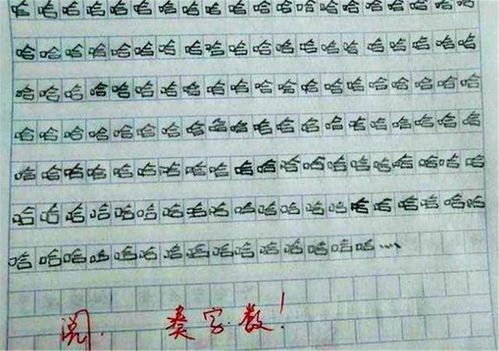 哈哈哈哈哈哈哈哈哈哈哈哈哈哈哈哈哈哈哈哈
哈哈哈哈哈哈哈哈哈哈哈哈哈哈哈哈哈哈哈哈
哈哈哈哈哈哈哈哈哈哈哈哈哈哈哈哈哈哈哈哈
哈哈哈哈哈哈哈哈哈哈哈哈哈哈哈哈哈哈哈哈
哈哈哈哈哈哈哈哈哈哈哈哈哈哈哈哈哈哈哈哈
哈哈哈哈哈哈哈哈哈哈哈哈哈哈哈哈哈哈哈哈
哈哈哈哈哈哈哈哈哈哈哈哈哈哈哈……
阅. 字数!